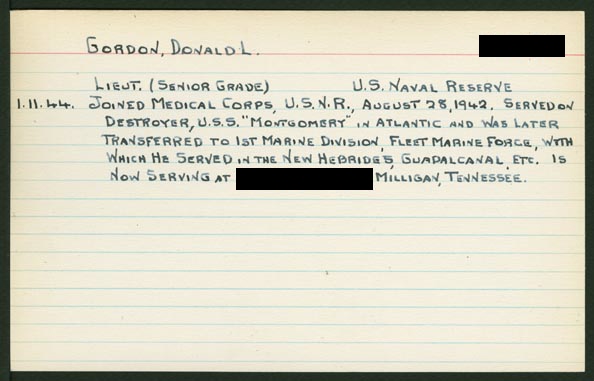 GORDON, DONALD L.
LIEUT. (SENIOR GRADE) U.S. NAVAL RESERVE
1.11.44. JOINED MEDICAL CORPS, U.S.N.R., AUGUST 28, 1942. SERVED ON
DESTROYER, U.S.S. "MONTGOMERY" IN ATLANTIC AND WAS LATER
TRANSFERRED TO 1ST MARINE DIVISION, FLEET MARINE FORCE, WITH
WHICH HE SERVED IN THE NEW HEBRIDES, GUADALCANAL, ETC. IS
NOW SERVING AT MILLIGAN, TENNESSEE.